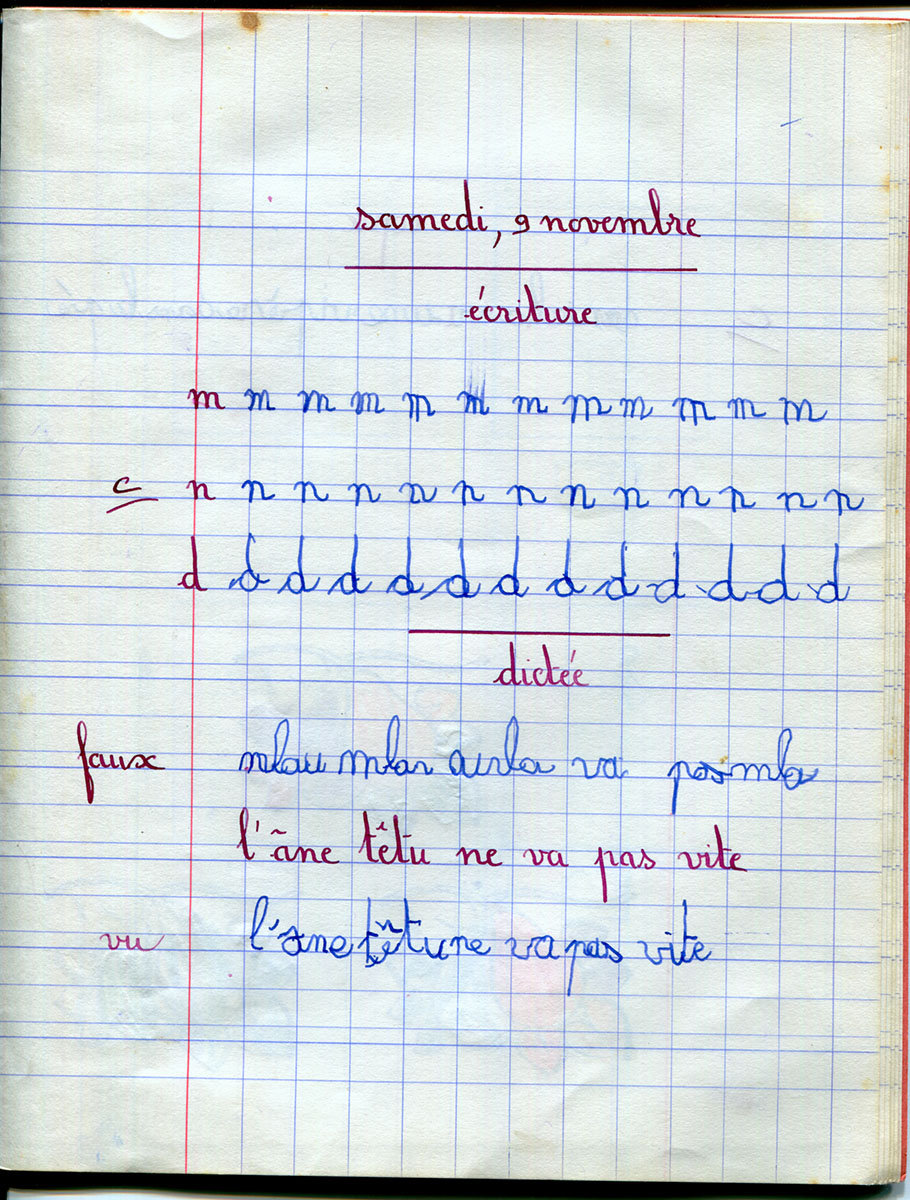 samedi, 9 novembre
écriture
m m m m m m m m m m m m
c n n n n n n n n n n n n n
d d d d d d d d d d d d d
dictée
faux va
l'âne têtu ne va pas vite
vu l'ane têtu ne va pas vite